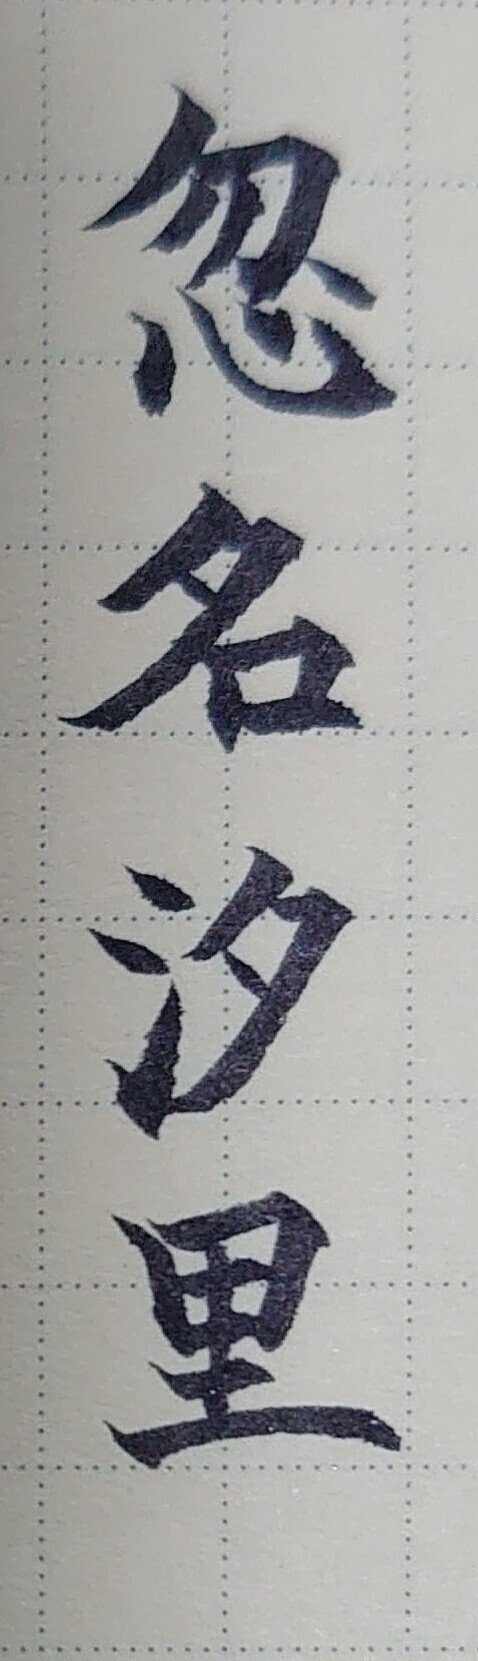 忽名汐里